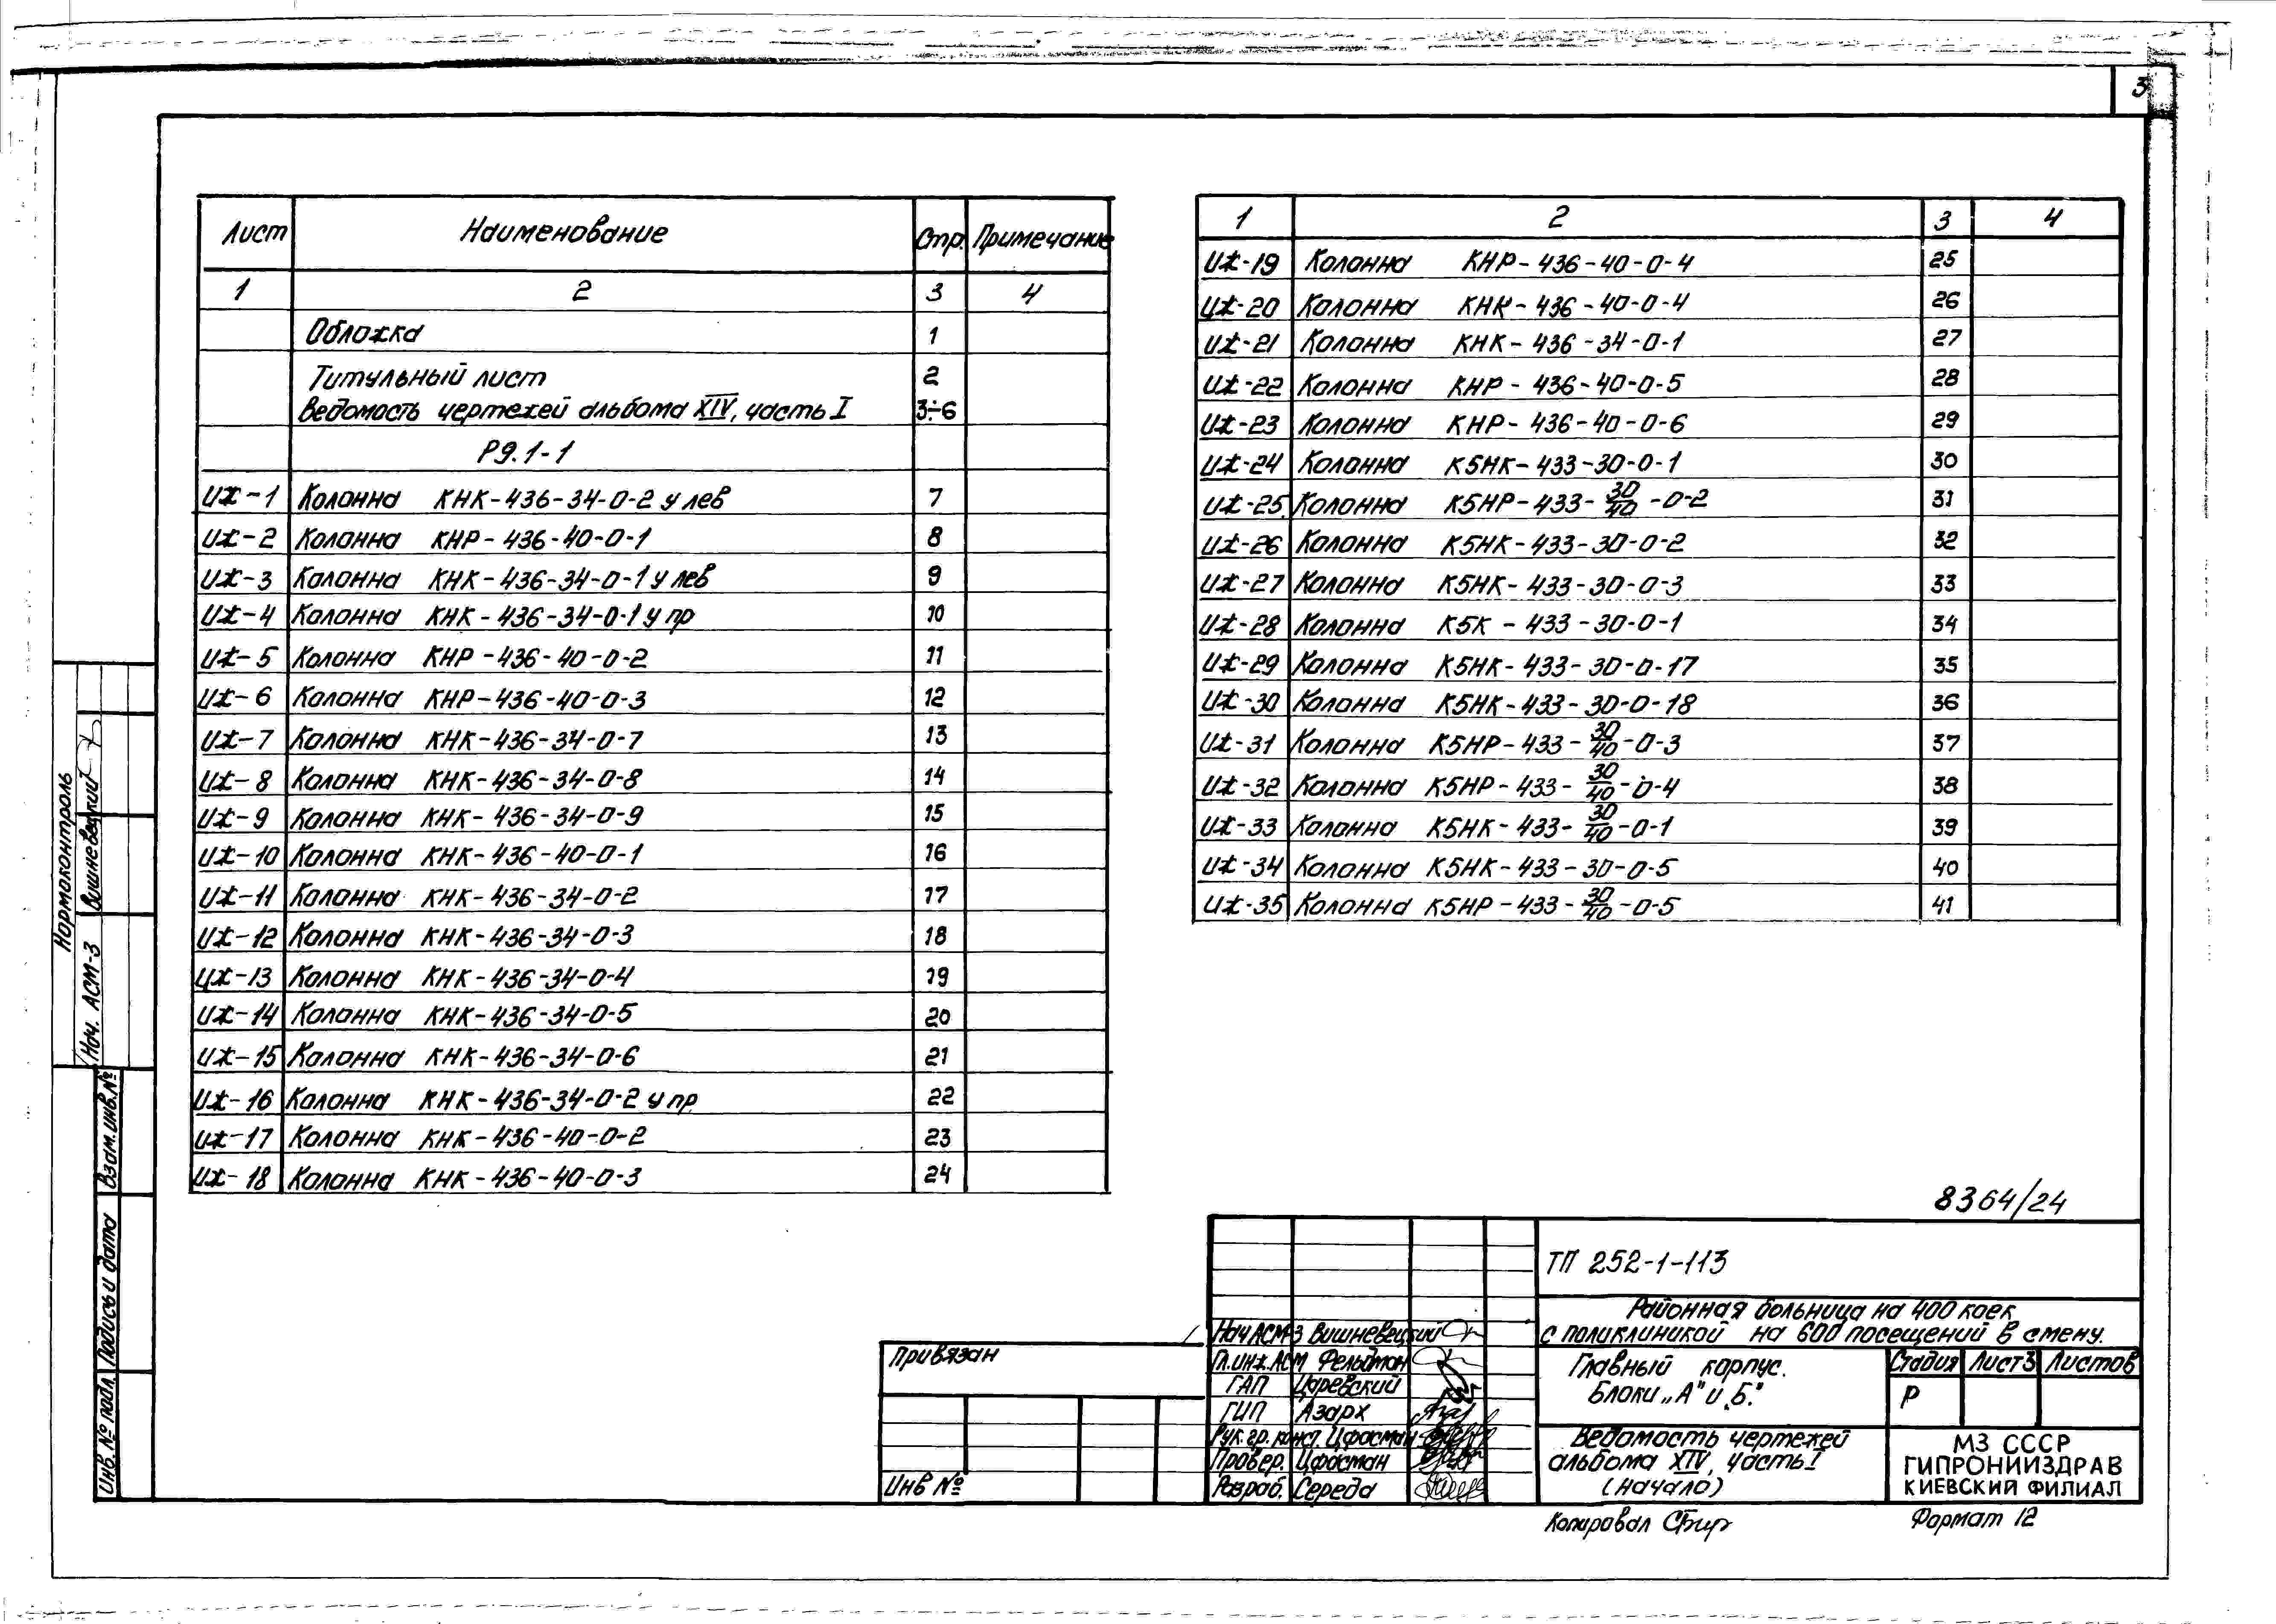 3
Лист Наименование Стр. Примечание
1 2 3 4
Обложка 1
Титульный лист 2
Ведомость чертежей альбома XIV, часть I 3÷6
Р9.1-1
ИЖ-1 Колонна КНК-436-34-0-2 у лев 7
ИЖ-2 Колонна КНР-436-40-0-1 8
ИЖ-3 Колонна КНК-436-34-0-1 у лев 9
ИЖ-4 Колонна КНК-436-34-0-1 у пр 10
ИЖ-5 Колонна КНР-436-40-0-2 11
ИЖ-6 Колонна КНР-436-40-0-3 12
ИЖ-7 Колонна КНК-436-34-0-7 13
ИЖ-8 Колонна КНК-436-34-0-8 14
ИЖ-9 Колонна КНК-436-34-0-9 15
ИЖ-10 Колонна КНК-436-40-0-1 16
ИЖ-11 Колонна КНК-436-34-0-2 17
ИЖ-12 Колонна КНК-436-34-0-3 18
ИЖ-13 Колонна КНК-436-34-0-4 19
ИЖ-14 Колонна КНК-436-34-0-5 20
ИЖ-15 Колонна КНК-436-34-0-6 21
ИЖ-16 Колонна КНК-436-34-0-2 у пр 22
ИЖ-17 Колонна КНК-436-40-0-2 23
ИЖ-18 Колонна КНК-436-40-0-3 24
1 2 3 4
ИЖ-19 Колонна КНР-436-40-0-4 25
ИЖ-20 Колонна КНК-436-40-0-4 26
ИЖ-21 Колонна КНК-436-34-0-1 27
ИЖ-22 Колонна КНР-436-40-0-5 28
ИЖ-23 Колонна КНР-436-40-0-6 29
ИЖ-24 Колонна К5НК-433-30-0-1 30
ИЖ-25 Колонна К5НР-433-30/40-0-2 31
ИЖ-26 Колонна К5НК-433-30-0-2 32
ИЖ-27 Колонна К5НК-433-30-0-3 33
ИЖ-28 Колонна К5К-433-30-0-1 34
ИЖ-29 Колонна К5НК-433-30-0-17 35
ИЖ-30 Колонна К5НК-433-30-0-18 36
ИЖ-31 Колонна К5НР-433-30/40-0-3 37
ИЖ-32 Колонна К5НР-433-30/40-0-4 38
ИЖ-33 Колонна К5НК-433-30/40-0-1 39
ИЖ-34 Колонна К5НК-433-30-0-5 40
ИЖ-35 Колонна К5НР-433-30/40-0-5 41
Нормоконтроль
Нач. АСМ-3 Вишневецкий
Взам.инв.№
Подпись и дата
Инв.№ подл.
8364/24
ТП 252-1-113
Районная больница на 400 коек
с поликлиникой на 600 посещений в смену.
Нач АСМ-3 Вишневецкий
Гл.инж.АСМ Фельдман
ГАП Царевский
ГИП Азарх
Рук.гр.конст. Цфасман
Провер. Цфасман
Разраб. Середа
Главный корпус.
Блоки „А" и „Б."
Стадия Лист3 Листов
Р
Ведомость чертежей
альбома XIV, часть I
(начало)
МЗ СССР
ГИПРОНИИЗДРАВ
КИЕВСКИЙ ФИЛИАЛ
Привязан
Инв №
Копировал
Формат 12